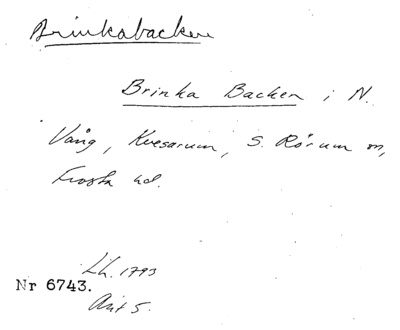 Brinkabacken
Brinka Backen i N.
Vång, Kvesarum, S. Rörum sn,
Frosta hd.
Lh. 1793
Nr 6743.
Akt 5.